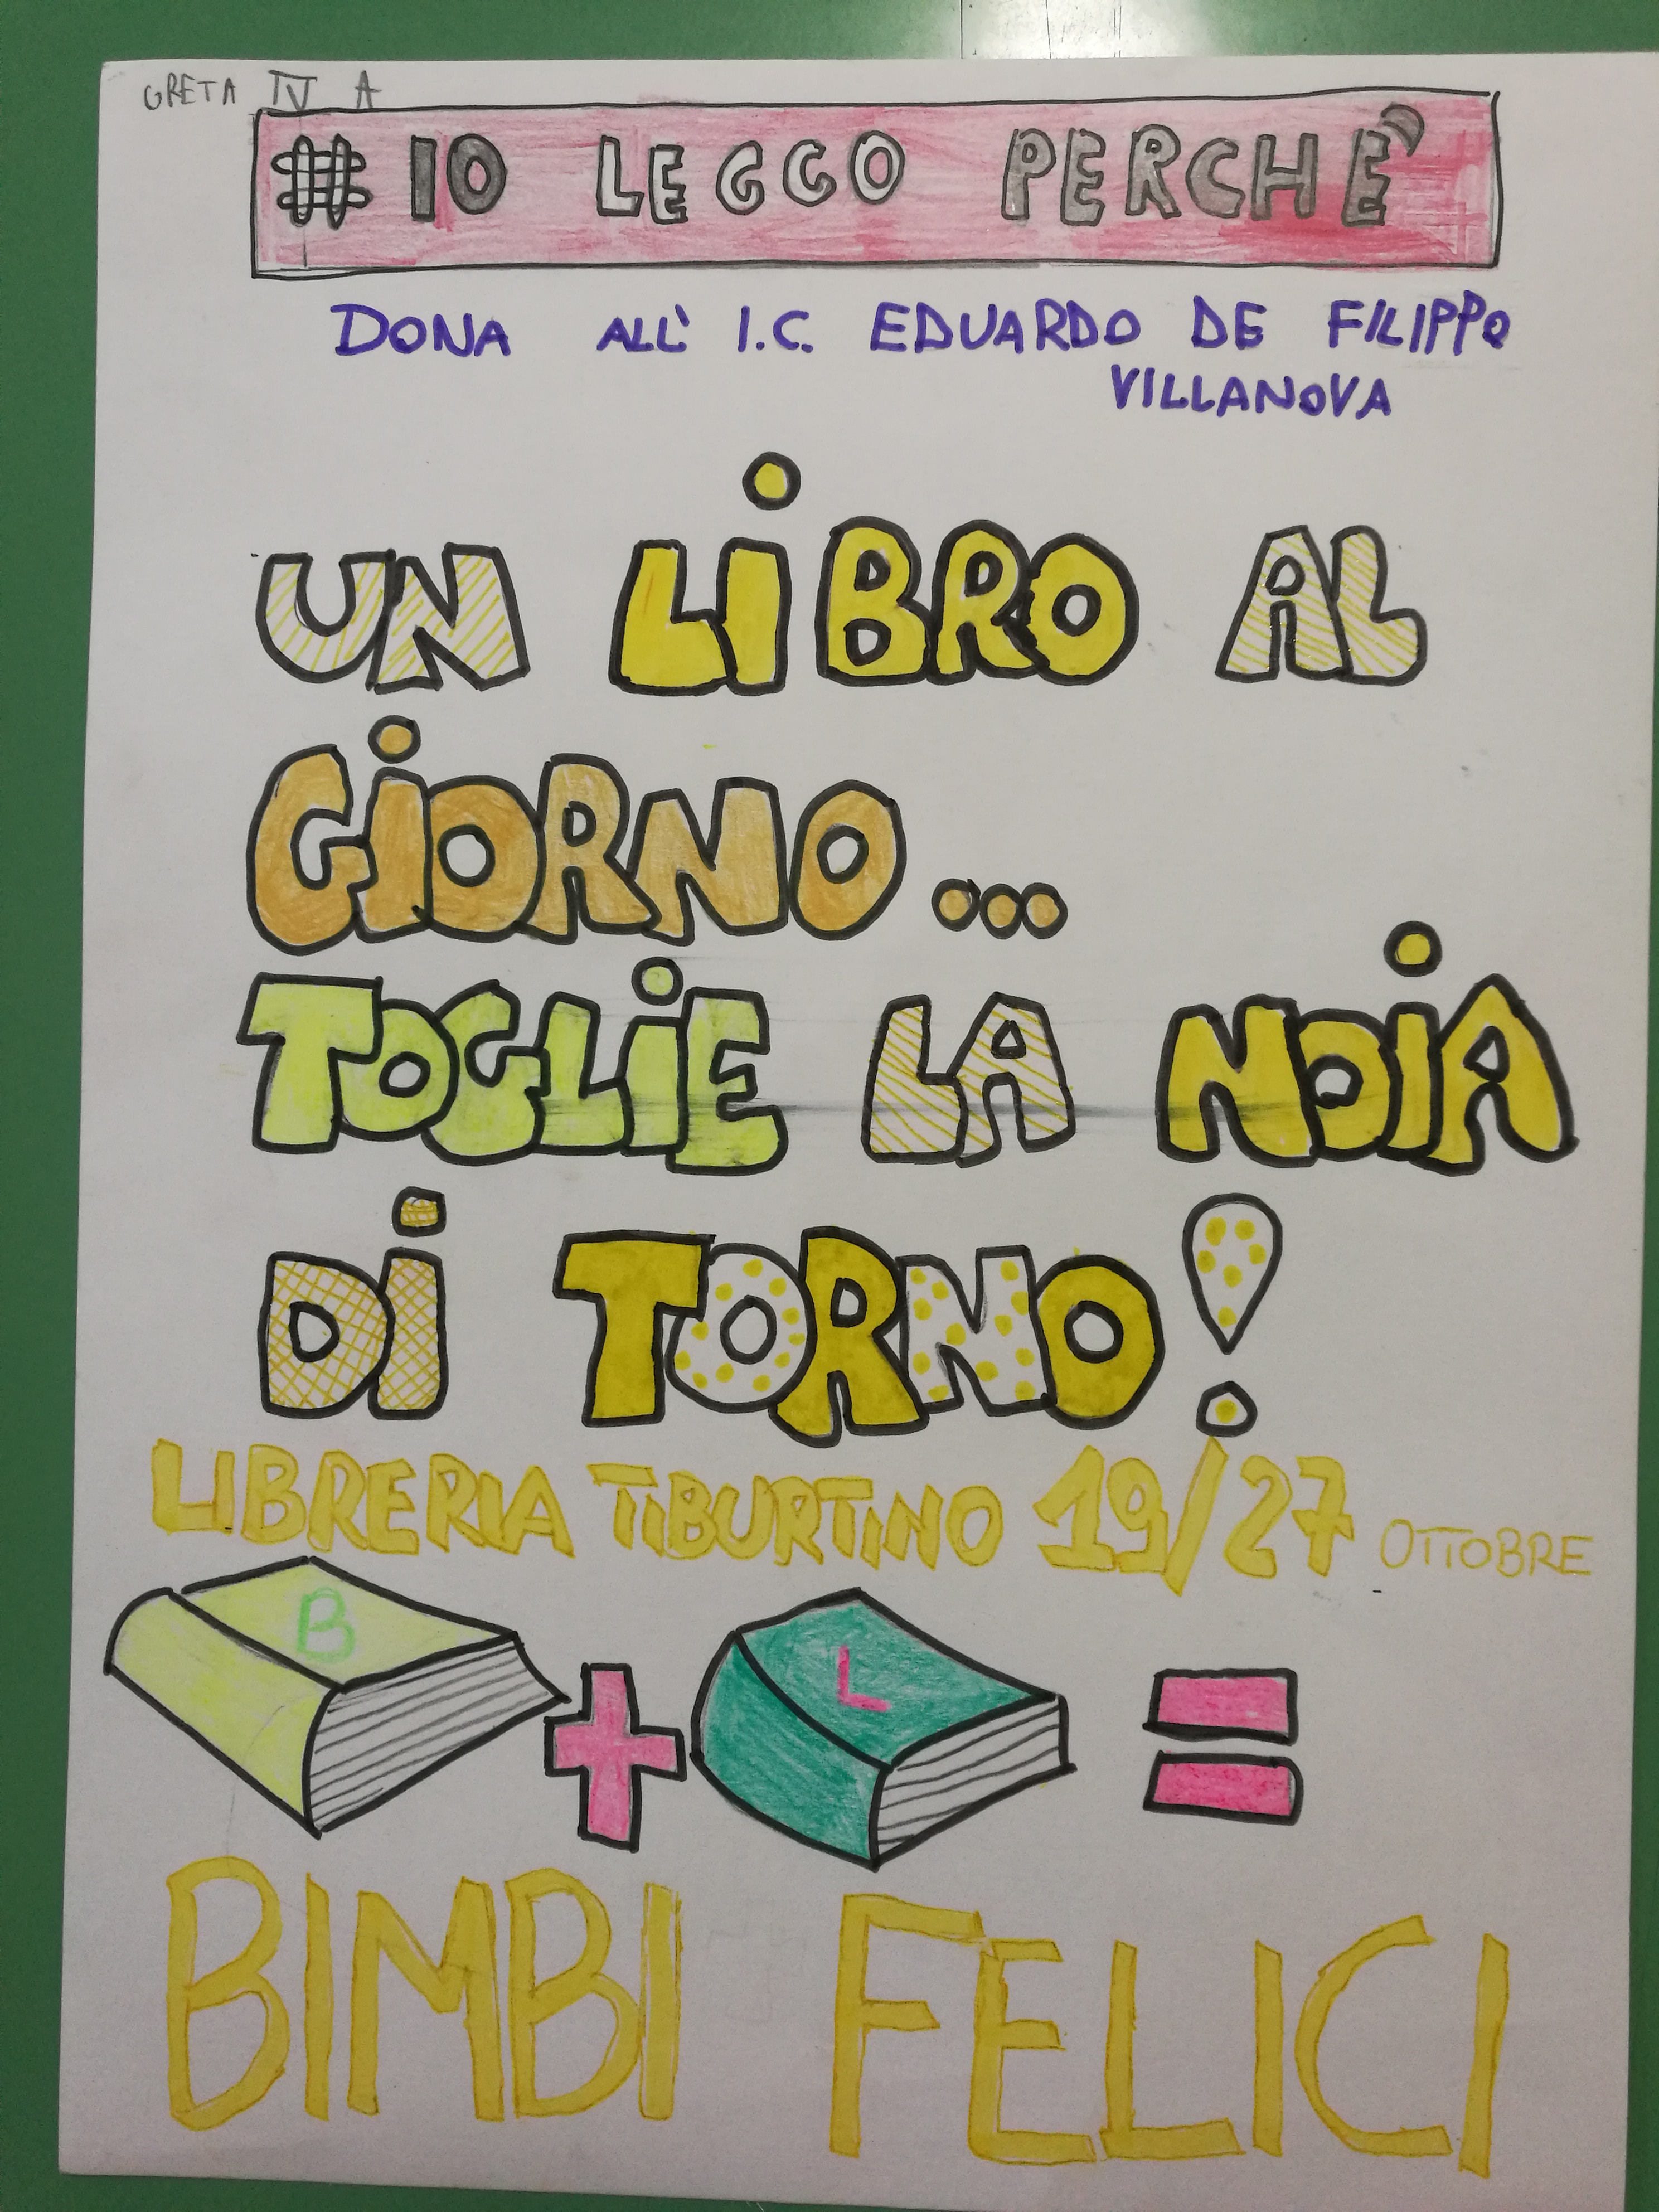 GRETA IV A
# IO LEGGO PERCHE'
DONA ALL' I.C. EDUARDO DE FILIPPO
VILLANOVA
UN LIBRO AL
GIORNO...
TOGLIE LA NOIA
DI TORNO!
LIBRERIA TIBURTINO 19/27 OTTOBRE
B + L =
BIMBI FELICI